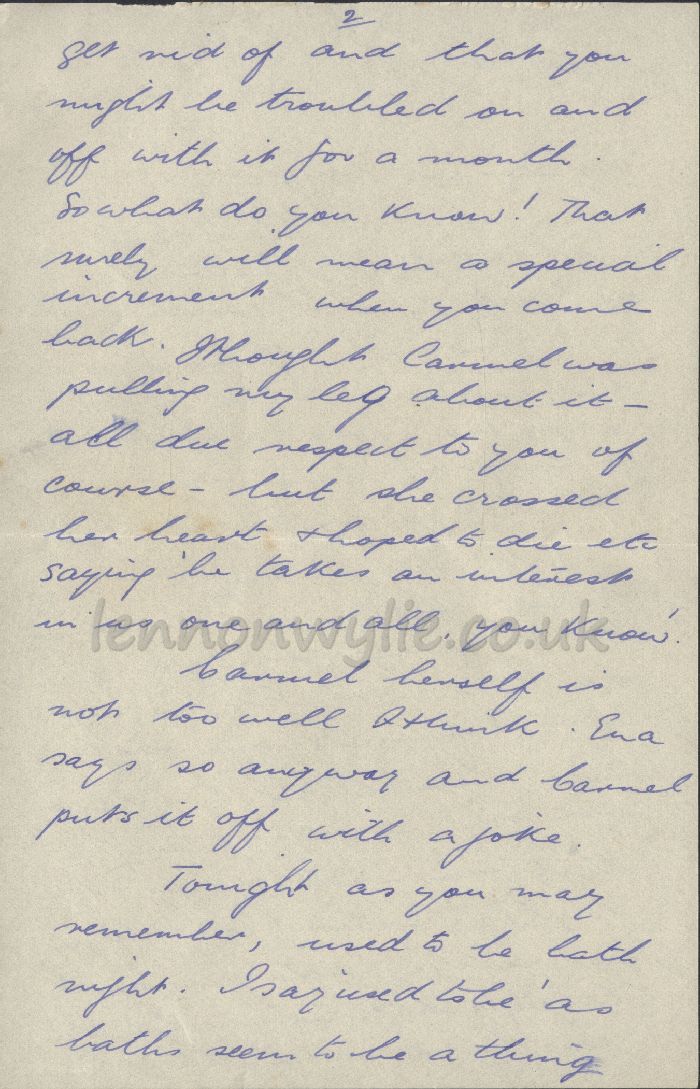 2
get rid of and that you
might be troubled on and
off with it for a month.
So what do you know! That
surely will mean a special
increment when you come
back. I thought Carmel was
pulling my leg about it –
all due respect to you of
course – but she crossed
her heart & hoped to die etc
saying 'he takes an interest
in us one and all, you know'.
lennonwylie.co.uk
Carmel herself is
not too well I think. Ena
says so anyway and Carmel
puts it off with a joke.
Tonight as you may
remember, used to be bath
night. I say 'used to be' as
baths seem to be a thing